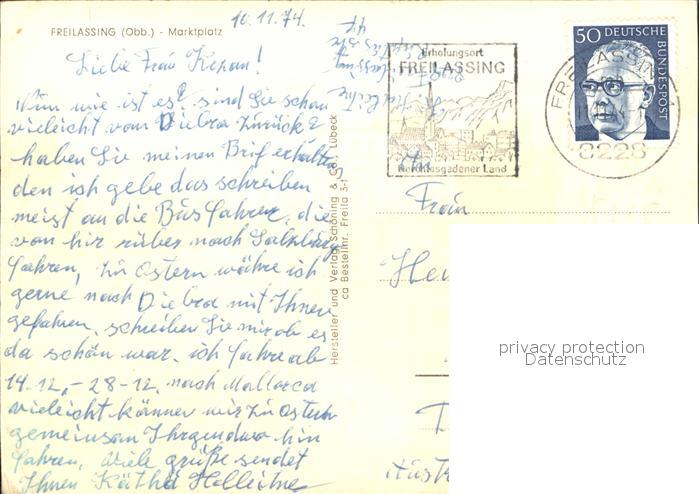 10.11.74.
FREILASSING (Obb.) - Marktplatz
Liebe Frau Kepan!
Nun wie ist es? sind Sie schon
vieleicht vom Diebra zurück?
haben Sie meinen Brif erhalten
den ich gebe das schreiben
meist an die Busfahrer, die
von hir rüber nach Salzburg
fahren, zu Ostern währe ich
gerne nach Diebra mit Ihnen
gefahren, schreiben Sie mir ob es
da schön war. ich fahre ab
14-12,-28-12. nach Mallorca
vieleicht können wir zu Ostern
gemeinsam Ihrgendwo hin
fahren, viele grüße sendet
Ihnen Käthe
Hersteller und Verlag Schöning & Co., Lübeck
ca Bestellnr. Freila
Erholungsort
FREILASSING
Berchtesgadener Land
FREILASSING 1
8228
50 DEUTSCHE
BUNDESPOST
An
Frau
privacy protection
Datenschutz